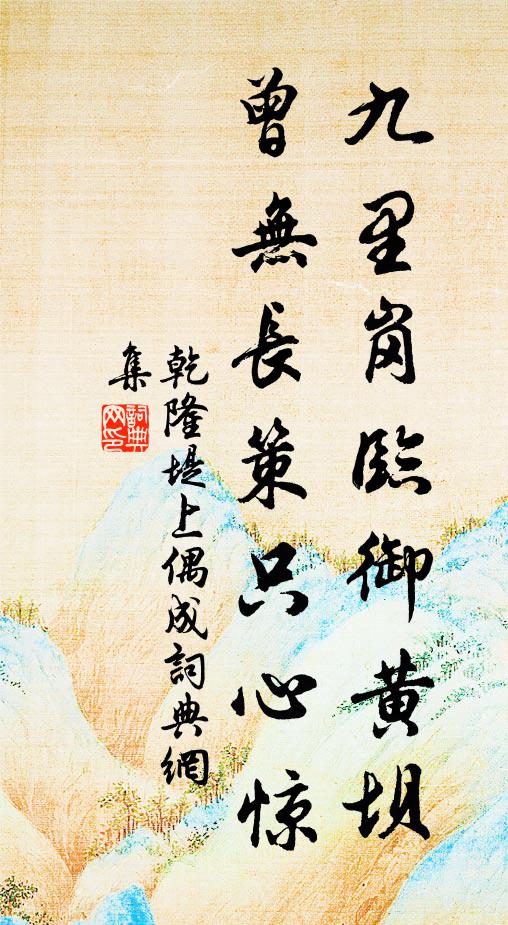 九里岗臨御黄坝
曾無長策只心惊
乾隆堤上偶成詞典網
集
詞典網印